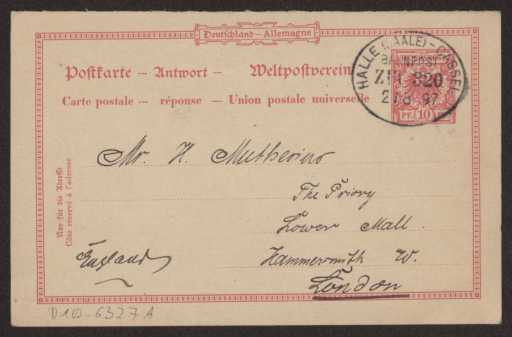 Deutschland – Allemagne
Postkarte – Antwort – Weltpostverein
Carte postale – réponse – Union postale universelle
HALLE (SAALE) - CASSEL
BAHNPOST
ZUG 320
97
PF. 10
Nur für die Adresse
Côté réservé à l'adresse
Mr. H. Muthesius
The Priory
Lower Mall.
Hammersmith W.
England
London
D 102-6327 A